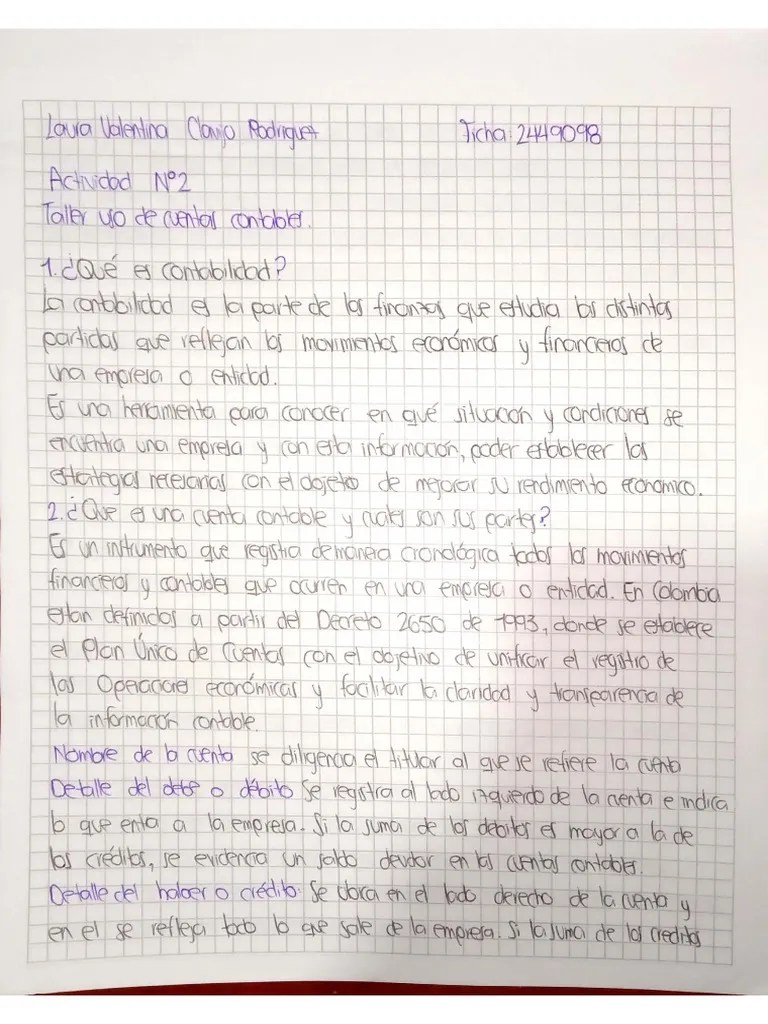 Laura Valentina Clavijo Rodriguez Ficha: 2449098
Actividad Nº2
Taller uso de cuentas contables.
1. ¿Qué es contabilidad?
La contabilidad es la parte de las finanzas que estudia las distintas
partidas que reflejan los movimientos económicos y financieros de
una empresa o entidad.
Es una herramienta para conocer en qué situación y condiciones se
encuentra una empresa y con esta información, poder establecer las
estrategias necesarias con el objeto de mejorar su rendimiento economico.
2. ¿Que es una cuenta contable y cuales son sus partes?
Es un instrumento que registra de manera cronológica todos los movimientos
financieros y contables que ocurren en una empresa o entidad. En Colombia
estan definidos a partir del Decreto 2650 de 1993, donde se establece
el Plan Único de Cuentas con el objetivo de unificar el registro de
las Operaciones económicas y facilitar la claridad y transparencia de
la información contable.
Nombre de la cuenta se diligencia el titular al que se refiere la cuenta
Detalle del debe o débito Se registra al lado izquierdo de la cuenta e indica
lo que entra a la empresa. Si la suma de los débitos es mayor a la de
los créditos, se evidencia un saldo deudor en las cuentas contables.
Detalle del haber o crédito: Se ubica en el lado derecho de la cuenta y
en el se refleja todo lo que sale de la empresa. Si la suma de los creditos